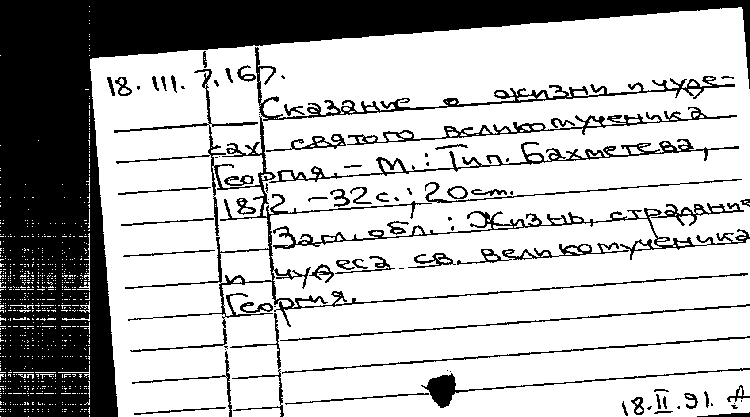 18. III. 7. 167.
Сказание о жизни и чуде-
сах святого великомученика
Георгия. – М.: Тип. Бахметева,
1872. – 32 с.; 20 см.
Заг. обл.: Жизнь, страдание
и чудеса св. великомученика
Георгия.
18.II.91.